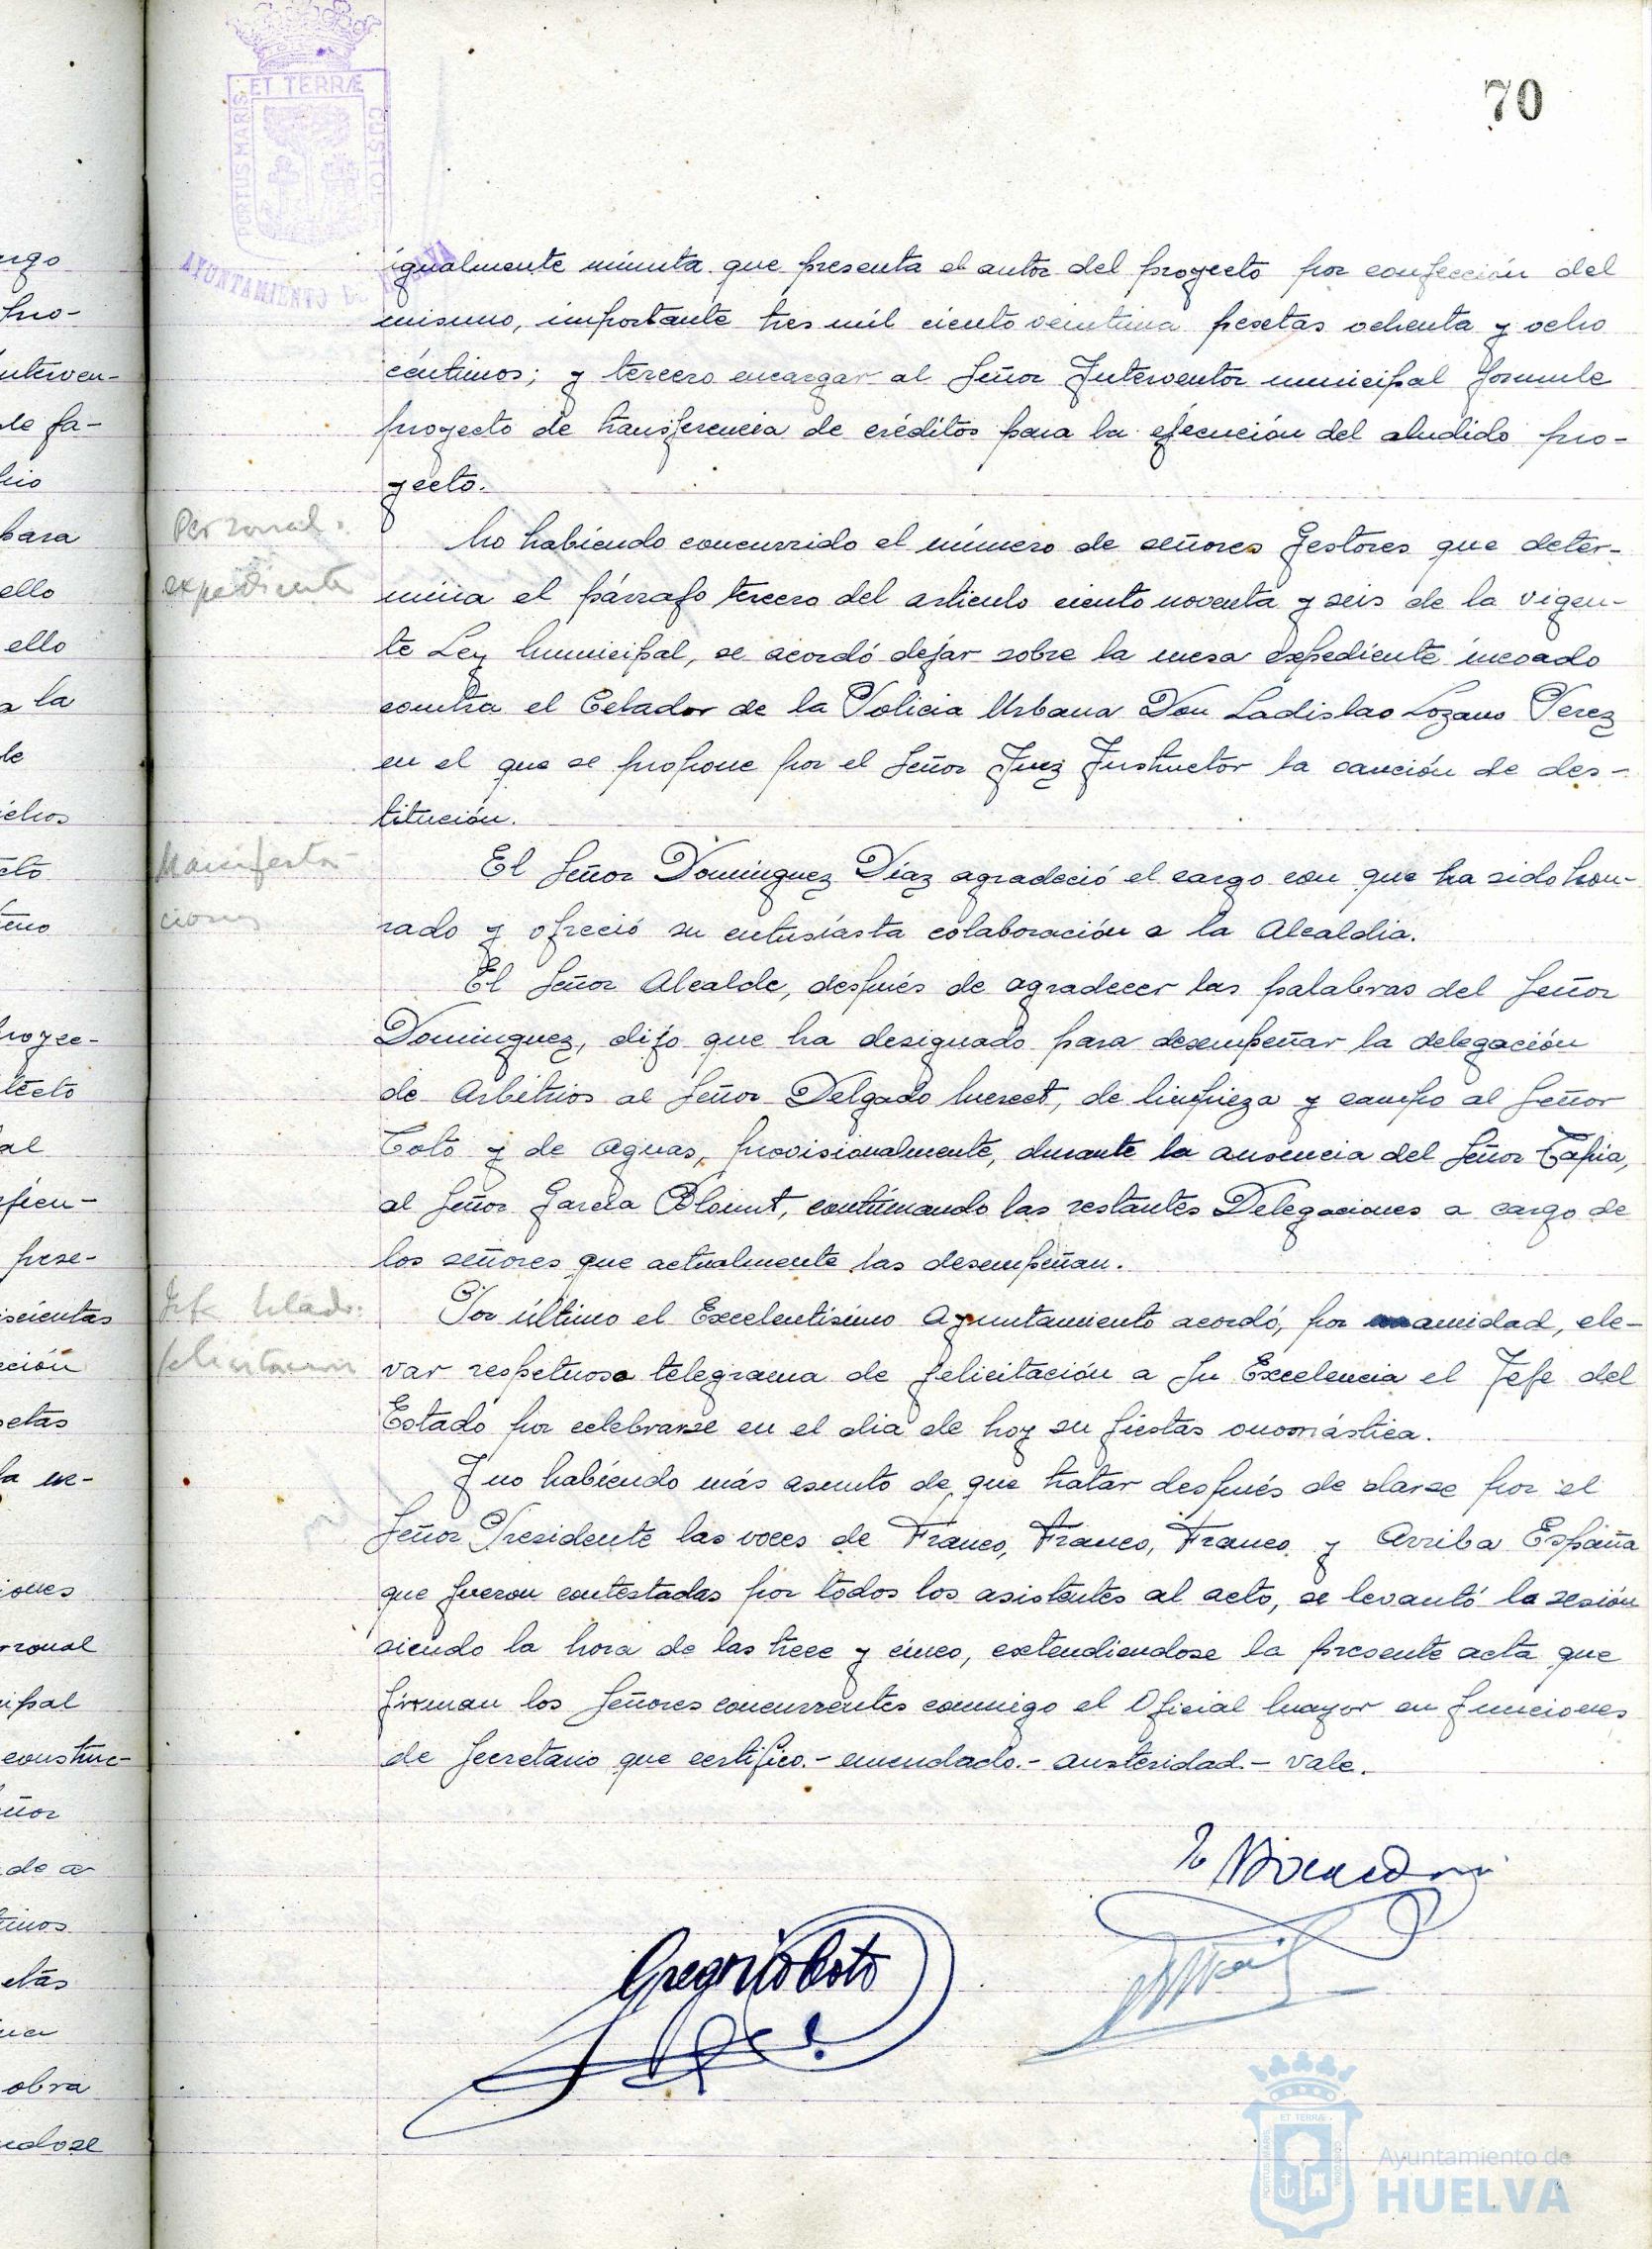 70
ET TERRÆ
PORTUS MARIS
CUSTO
AYUNTAMIENTO DE HUELVA
igualmente minuta que presenta el autor del proyecto por confección del
mismo, importante tres mil ciento veintiuna pesetas ochenta y ocho
céntimos; y tercero encargar al Señor Interventor municipal formule
proyecto de transferencia de créditos para la ejecución del aludido pro-
yecto.
Personal.
expediente
No habiendo concurrido el número de señores Gestores que deter-
mina el párrafo tercero del articulo ciento noventa y seis de la vigen-
te Ley Municipal, se acordó dejar sobre la mesa expediente incoado
contra el Celador de la Policia Urbana Don Ladislao Lozano Perez
en el que se propone por el Señor Juez Instructor la sanción de des-
titución.
Manifesta-
ciones
El Señor Dominguez Díaz agradeció el cargo con que ha sido hon-
rado y ofreció su entusiasta colaboración a la Alcaldia.
El Señor Alcalde, después de agradecer las palabras del Señor
Dominguez, dijo que ha designado para desempeñar la delegación
de Arbitrios al Señor Delgado Merect, de limpieza y campo al Señor
Coto y de Aguas, provisionalmente, durante la ausencia del Señor Tapia,
al Señor Garcia Blount, continuando las restantes Delegaciones a cargo de
los señores que actualmente las desempeñan.
Jefe Estado.
felicitacion
Por último el Excelentisimo Ayuntamiento acordó, por unamidad, ele-
var respetuoso telegrama de felicitación a Su Excelencia el Jefe del
Estado por celebrarse en el dia de hoy su fiestas onomástica.
Y no habiendo más asunto de que tratar después de darse por el
Señor Presidente las voces de Franco, Franco, Franco y Arriba España
que fueron contestadas por todos los asistentes al acto, se levantó la sesión
siendo la hora de las trece y cinco, extendiendose la presente acta que
firman los Señores concurrentes conmigo el Oficial Mayor en funciones
de Secretario que certifico.- enmendado.- austeridad.- vale.
Gregorio Coto
Ayuntamiento de
HUELVA